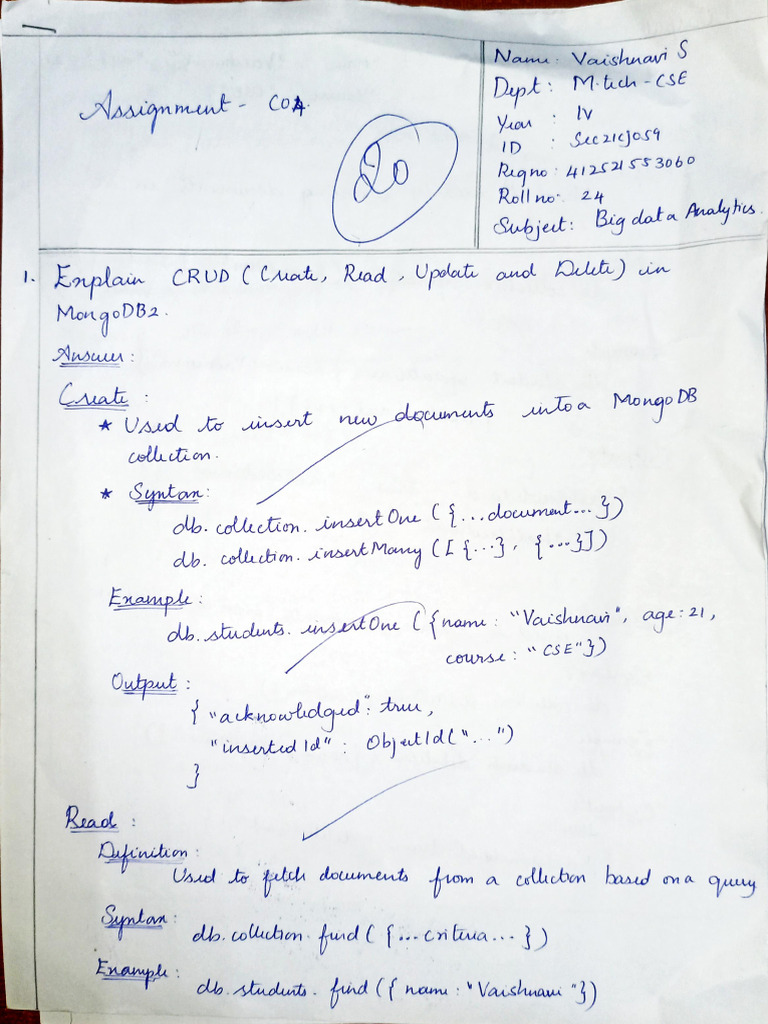 Assignment - CO4.
20
Name: Vaishnavi S
Dept: M.tech - CSE
Year : IV
ID : Sec21CJ059
Reg no: 412521553060
Roll no: 24
Subject: Big data Analytics.
1. Explain CRUD (Create, Read, Update and Delete) in
MongoDB2.
Answer:
Create :
* Used to insert new documents into a MongoDB
collection.
* Syntax:
db.collection.insertOne ({...document...})
db.collection.insertMany ([{...}, {...}])
Example:
db.students.insertOne ({name: "Vaishnavi", age:21,
course: "CSE"})
Output :
{ "acknowledged": true,
"insertedId" : ObjectId("...")
}
Read :
Definition:
Used to fetch documents from a collection based on a query
Syntax:
db.collection.find({...criteria...})
Example:
db.students.find({name: "Vaishnavi"})